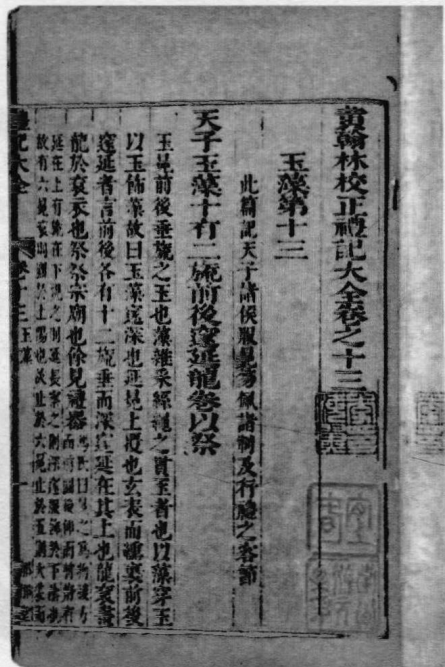 黄翰林校正禮記大全卷之十三
玉藻第十三
此篇記天子諸侯服冕笏佩諸制及行禮之容節
天子玉藻十有二旒前後邃延龍卷以祭
玉冕前後垂旒之玉也藻雜采絲繩之貫玉者也以藻穿玉
以玉飾藻故曰玉藻邃深也延冕上覆也玄表而纁裏前後
邃延者言前後各有十二旒垂而深邃延在其上也龍袞畫
龍於袞衣也祭祭宗廟也餘見禮器
延在上有旒在下視之則延長察之則深邃
故有六冕
禮記大全
卷十三
玉藻